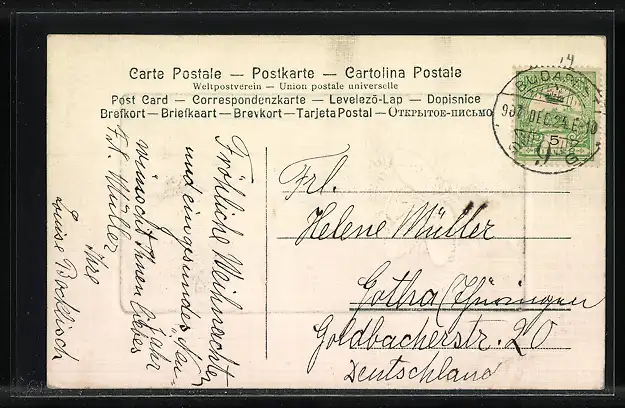 Carte Postale — Postkarte — Cartolina Postale
Weltpostverein — Union postale universelle
Post Card — Correspondenzkarte — Levelező-Lap — Dopisnice
Brefkort — Briefkaart — Brevkort — Tarjeta Postal — Открытое-письмо
BUDAPEST
907 DEC. 24
5
Frl.
Helene Müller
Gotha (Thüringen
Goldbacherstr. 20
Deutschland
Fröhliche Weihnachten
und ein gesundes Neu-
jahr
wünscht Ihnen liebes
Frl. Müller
Ihre
Luise